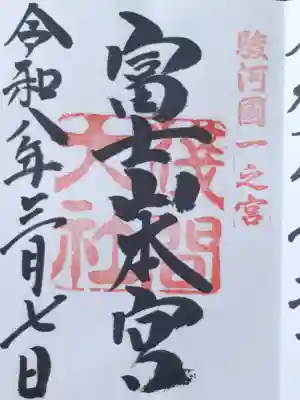 駿河國一之宮
富士山本宮
淺間大社
令和八年三月七日